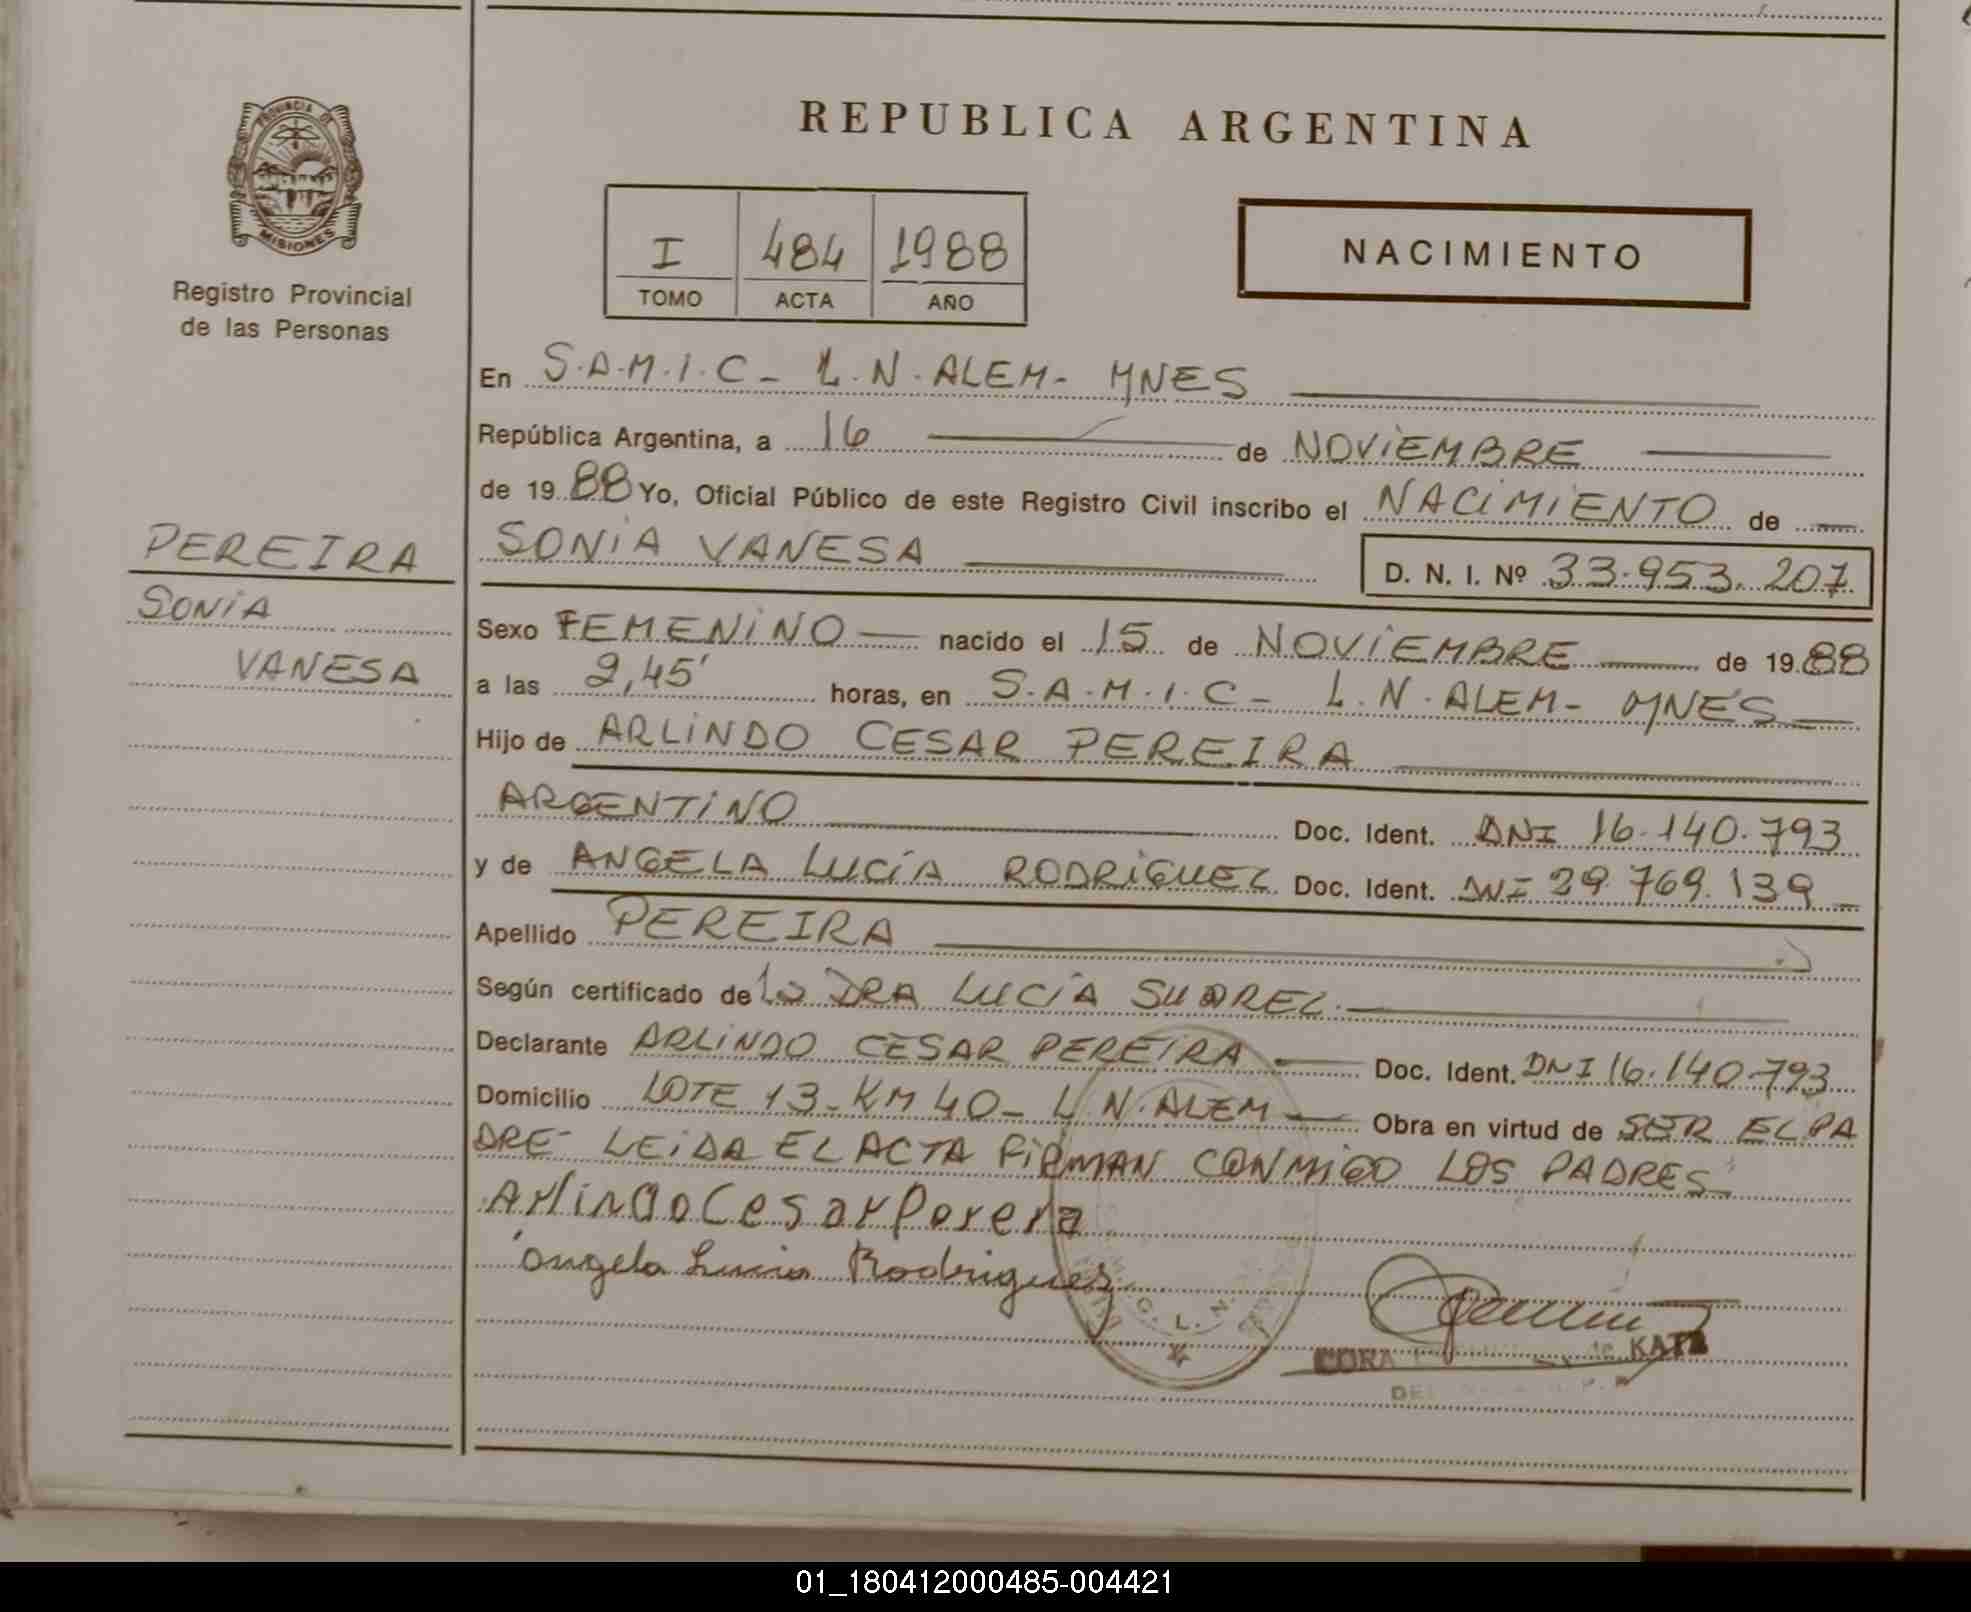 REPUBLICA ARGENTINA
PROVINCIA DE
MISIONES
Registro Provincial
de las Personas
I 484 1988
TOMO ACTA AÑO
NACIMIENTO
En S.A.M.I.C- L.N.ALEM- MNES
República Argentina, a 16 de NOViEMBRE
de 19 88 Yo, Oficial Público de este Registro Civil inscribo el NACiMiENTO de
SONiA VANESA
D. N. I. Nº 33.953.207
PEREIRA
SONiA
VANESA
Sexo FEMENiNO nacido el 15 de NOViEMBRE de 19 88
a las 2,45' horas, en S.A.M.I.C- L.N.ALEM- MNES
Hijo de ARLiNDO CESAR PEREIRA
ARGENTiNO Doc. Ident. DNI 16.140.793
y de ANGELA LUCíA RODRiGUEZ Doc. Ident. DNI 29.769.139
Apellido PEREIRA
Según certificado de la DRA LUCíA SUAREZ.
Declarante ARLiNDO CESAR PEREiRA Doc. Ident. DNI 16.140.793
Domicilio LOTE 13-KM 40- L.N.ALEM Obra en virtud de SER EL PA
DRE- LEiDA EL ACTA FiRMAN CONMiGO LOS PADRES
Arlindo Cesar Perera
Angela Lucia Rodrigues
L. N.
CORA KATZ
01_180412000485-004421